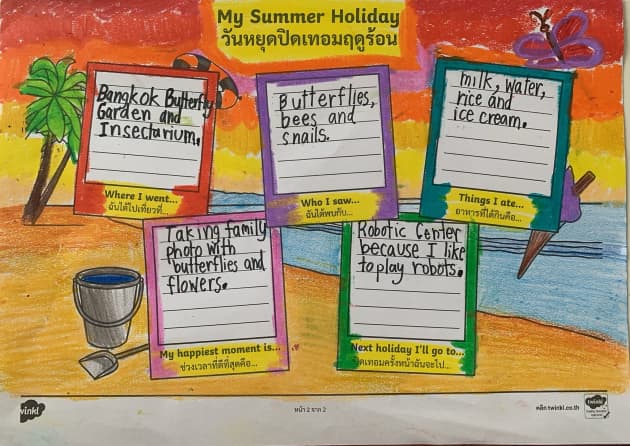 My Summer Holiday
วันหยุดปิดเทอมฤดูร้อน
Bangkok Butterfly
Garden and
Insectarium.
Where I went...
ฉันได้ไปเที่ยวที่...
Butterflies,
bees and
snails.
Who I saw...
ฉันได้พบกับ...
milk, water,
rice and
ice cream.
Things I ate...
อาหารที่ได้กินคือ...
Taking family
photo with
butterflies and
flowers.
My happiest moment is...
ช่วงเวลาที่ดีที่สุดคือ...
Robotic Center
because I like
to play robots.
Next holiday I'll go to...
ปิดเทอมครั้งหน้าฉันจะไป...
twinkl
หน้า 2 จาก 2
คลิก twinkl.co.th
twinkl